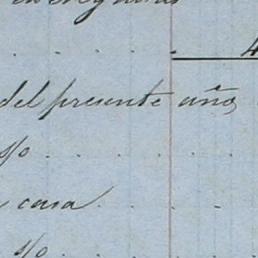 4
del presente año,
s/o
casa
s/o